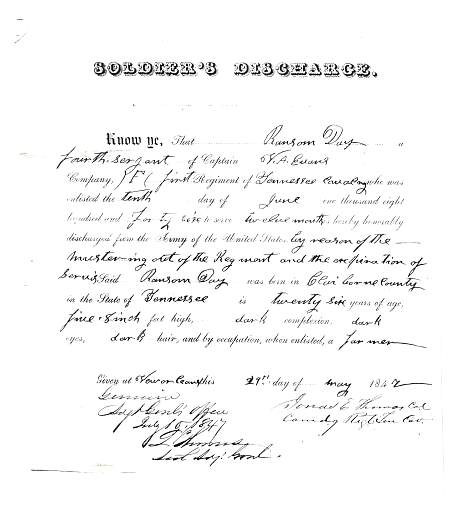 SOLDIER'S DISCHARGE.
Know ye, That Ransom Day a
fourth sergant of Captain W.A. Evans
Company, "F" first Regiment of Tennessee Cavalry who was
enlisted the tenth day of June one thousand eight
hundred and forty six to serve twelve months, hereby honorably
discharged from the Army of the United States, by reason of the
mustering out of the Regment and the expiration of
Servis Said Ransom Day was born in Claiborne County
in the State of Tennessee is twenty six years of age,
five 8 inch feet high, dark complexion, dark
eyes, dark hair, and by occupation, when enlisted, a farmer
Given at this 29th day of may 184
Genuine
Adjt Genl's Office
July 15, 1847
Thomas Col
Comdg Regt Ten Cav.